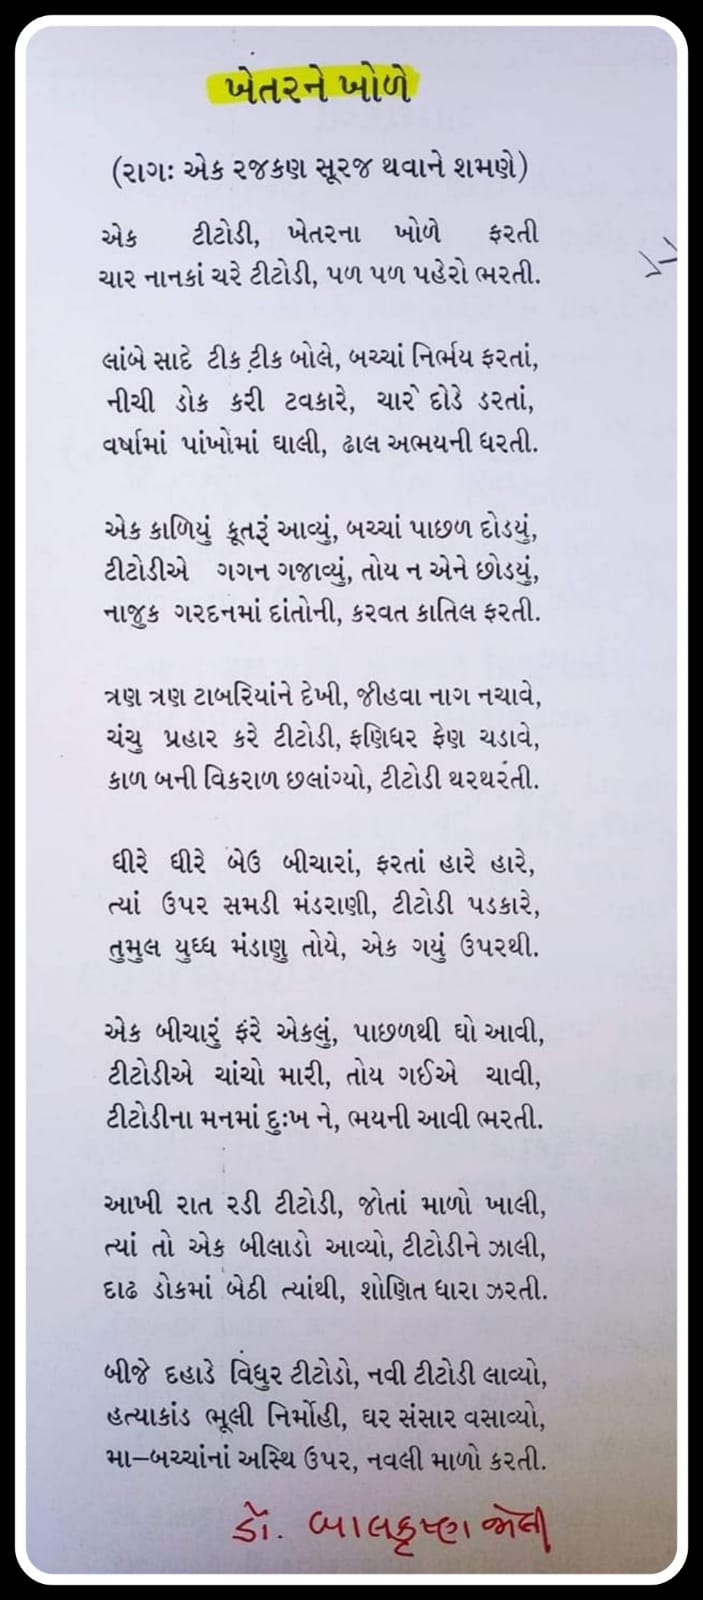 ખેતરને ખોળે
(રાગઃ એક રજકણ સૂરજ થવાને શમણે)
એક ટીટોડી, ખેતરના ખોળે ફરતી
ચાર નાનકાં ચરે ટીટોડી, પળ પળ પહેરો ભરતી.
લાંબે સાદે ટીક ટીક બોલે, બચ્ચાં નિર્ભય ફરતાં,
નીચી ડોક કરી ટવકારે, ચારે દોડે ડરતાં,
વર્ષામાં પાંખોમાં ઘાલી, ઢાલ અભયની ધરતી.
એક કાળિયું કૂતરૂં આવ્યું, બચ્ચાં પાછળ દોડયું,
ટીટોડીએ ગગન ગજાવ્યું, તોય ન એને છોડયું,
નાજુક ગરદનમાં દાંતોની, કરવત કાતિલ ફરતી.
ત્રણ ત્રણ ટાબરિયાંને દેખી, જીહવા નાગ નચાવે,
ચંચુ પ્રહાર કરે ટીટોડી, ફણિધર ફેણ ચડાવે,
કાળ બની વિકરાળ છલાંગ્યો, ટીટોડી થરથરંતી.
ધીરે ધીરે બેઉ બીચારાં, ફરતાં હારે હારે,
ત્યાં ઉપર સમડી મંડરાણી, ટીટોડી પડકારે,
તુમુલ યુધ્ધ મંડાણુ તોયે, એક ગયું ઉપરથી.
એક બીચારું ફરે એકલું, પાછળથી ઘો આવી,
ટીટોડીએ ચાંચો મારી, તોય ગઈએ ચાવી,
ટીટોડીના મનમાં દુઃખ ને, ભયની આવી ભરતી.
આખી રાત રડી ટીટોડી, જોતાં માળો ખાલી,
ત્યાં તો એક બીલાડો આવ્યો, ટીટોડીને ઝાલી,
દાઢ ડોકમાં બેઠી ત્યાંથી, શોણિત ધારા ઝરતી.
બીજે દહાડે વિધુર ટીટોડો, નવી ટીટોડી લાવ્યો,
હત્યાકાંડ ભૂલી નિર્મોહી, ઘર સંસાર વસાવ્યો,
મા–બચ્ચાંનાં અસ્થિ ઉપર, નવલી માળો કરતી.
ડૉ. બાલકૃષ્ણ જોષી